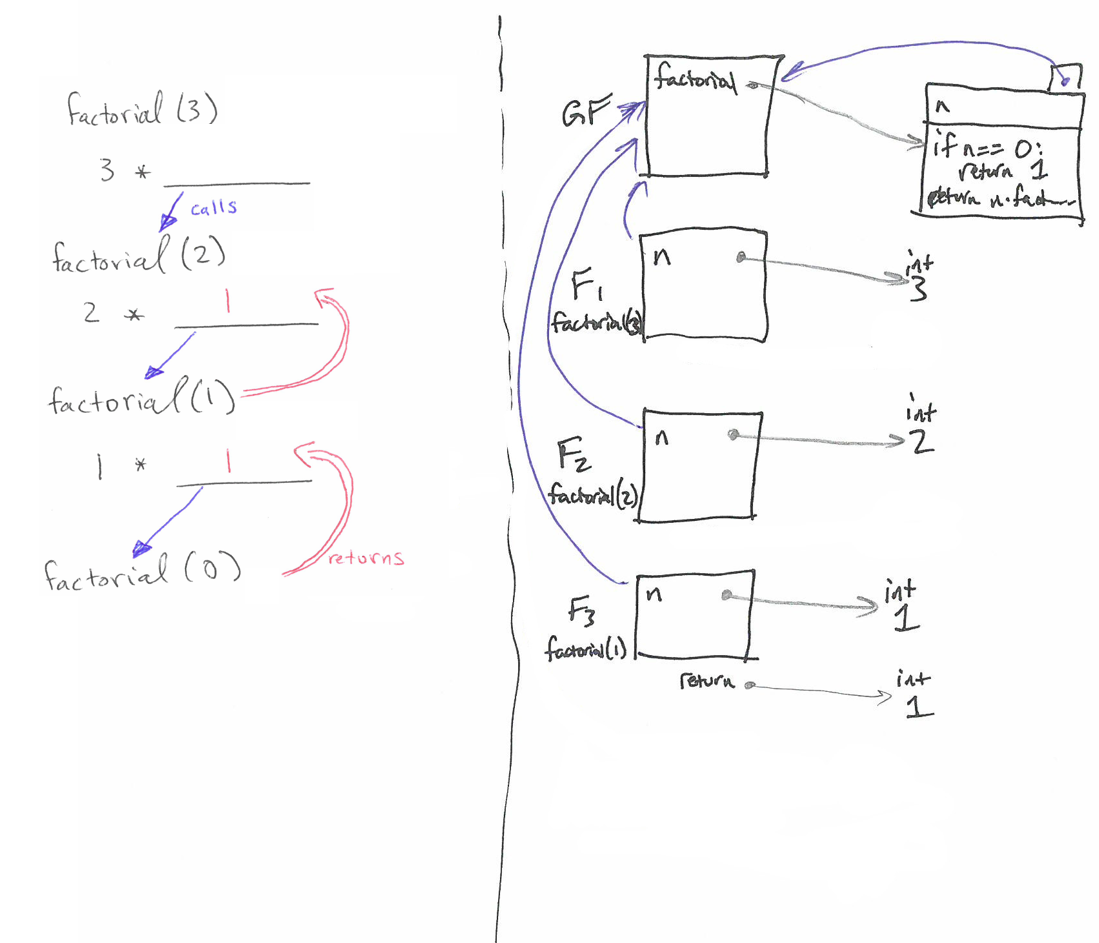 factorial (3)
3 *
calls
factorial (2)
2 * 1
factorial (1)
1 * 1
factorial (0)
returns
GF
factorial
n
if n == 0:
return 1
return n·fact
F1
factorial(3)
n
int
3
F2
factorial(2)
n
int
2
F3
factorial(1)
n
int
1
return
int
1